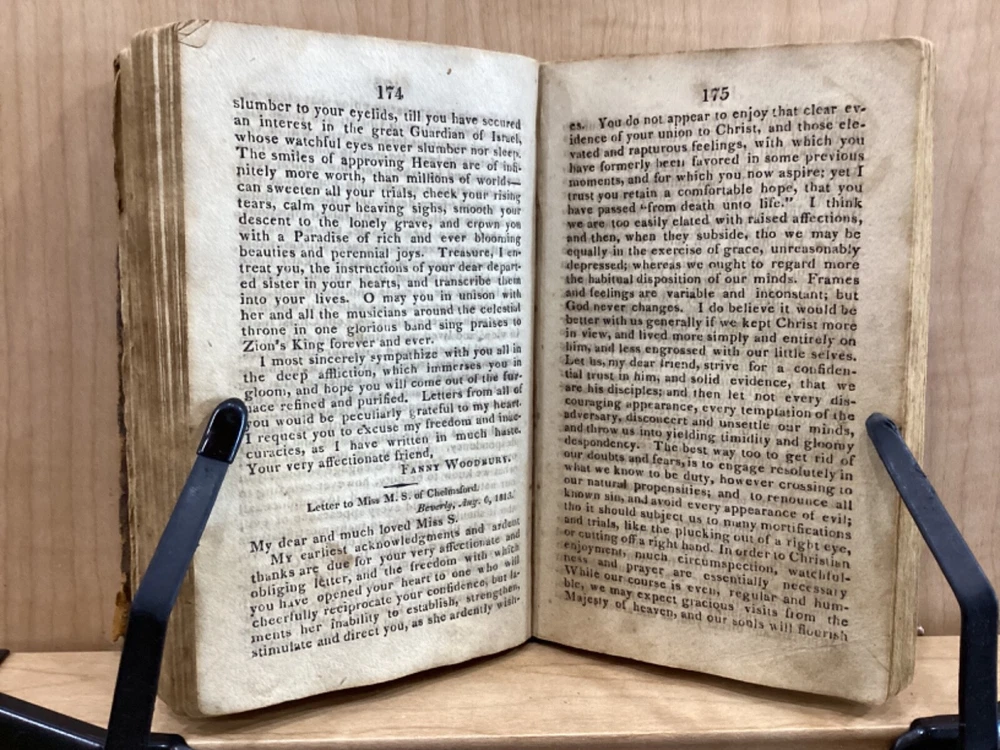 174
slumber to your eyelids, till you have secured
an interest in the great Guardian of Israel,
whose watchful eyes never slumber nor sleep.
The smiles of approving Heaven are of infi-
nitely more worth, than millions of worlds—
can sweeten all your trials, check your rising
tears, calm your heaving sighs, smooth your
descent to the lonely grave, and crown you
with a Paradise of rich and ever blooming
beauties and perennial joys. Treasure, I en-
treat you, the instructions of your dear depart-
ed sister in your hearts, and transcribe them
into your lives. O may you in unison with
her and all the musicians around the celestial
throne in one glorious band sing praises to
Zion's King forever and ever.
I most sincerely sympathize with you all in
the deep affliction, which immerses you in
gloom, and hope you will come out of the fur-
nace refined and purified. Letters from all of
you would be peculiarly grateful to my heart.
I request you to excuse my freedom and inac-
curacies, as I have written in much haste.
Your very affectionate friend,
FANNY WOODBURY.
Letter to Miss M. S. of Chelmsford.
Beverly, Aug. 6, 1813.
My dear and much loved Miss S.
My earliest acknowledgments and ardent
thanks are due for your very affectionate and
obliging letter, and the freedom with which
you have opened your heart to one who will
cheerfully reciprocate your confidence, but la-
ments her inability to establish, strengthen,
stimulate and direct you, as she ardently wish-
175
es. You do not appear to enjoy that clear ev-
idence of your union to Christ, and those ele-
vated and rapturous feelings, with which you
have formerly been favored in some previous
moments, and for which you now aspire; yet I
trust you retain a comfortable hope, that you
have passed "from death unto life." I think
we are too easily elated with raised affections,
and then, when they subside, tho we may be
equally in the exercise of grace, unreasonably
depressed; whereas we ought to regard more
the habitual disposition of our minds. Frames
and feelings are variable and inconstant; but
God never changes. I do believe it would be
better with us generally if we kept Christ more
in view, and lived more simply and entirely on
him, and less engrossed with our little selves.
Let us, my dear friend, strive for a confiden-
tial trust in him, and solid evidence, that we
are his disciples; and then let not every dis-
couraging appearance, every temptation of the
adversary, disconcert and unsettle our minds,
and throw us into yielding timidity and gloomy
despondency. The best way too to get rid of
our doubts and fears, is to engage resolutely in
what we know to be duty, however crossing to
our natural propensities; and to renounce all
known sin, and avoid every appearance of evil;
tho it should subject us to many mortifications
and trials, like the plucking out of a right eye,
or cutting off a right hand. In order to Christian
enjoyment, much circumspection, watchful-
ness and prayer are essentially necessary
While our course is even, regular and hum-
ble, we may expect gracious visits from the
Majesty of heaven, and our souls will flourish